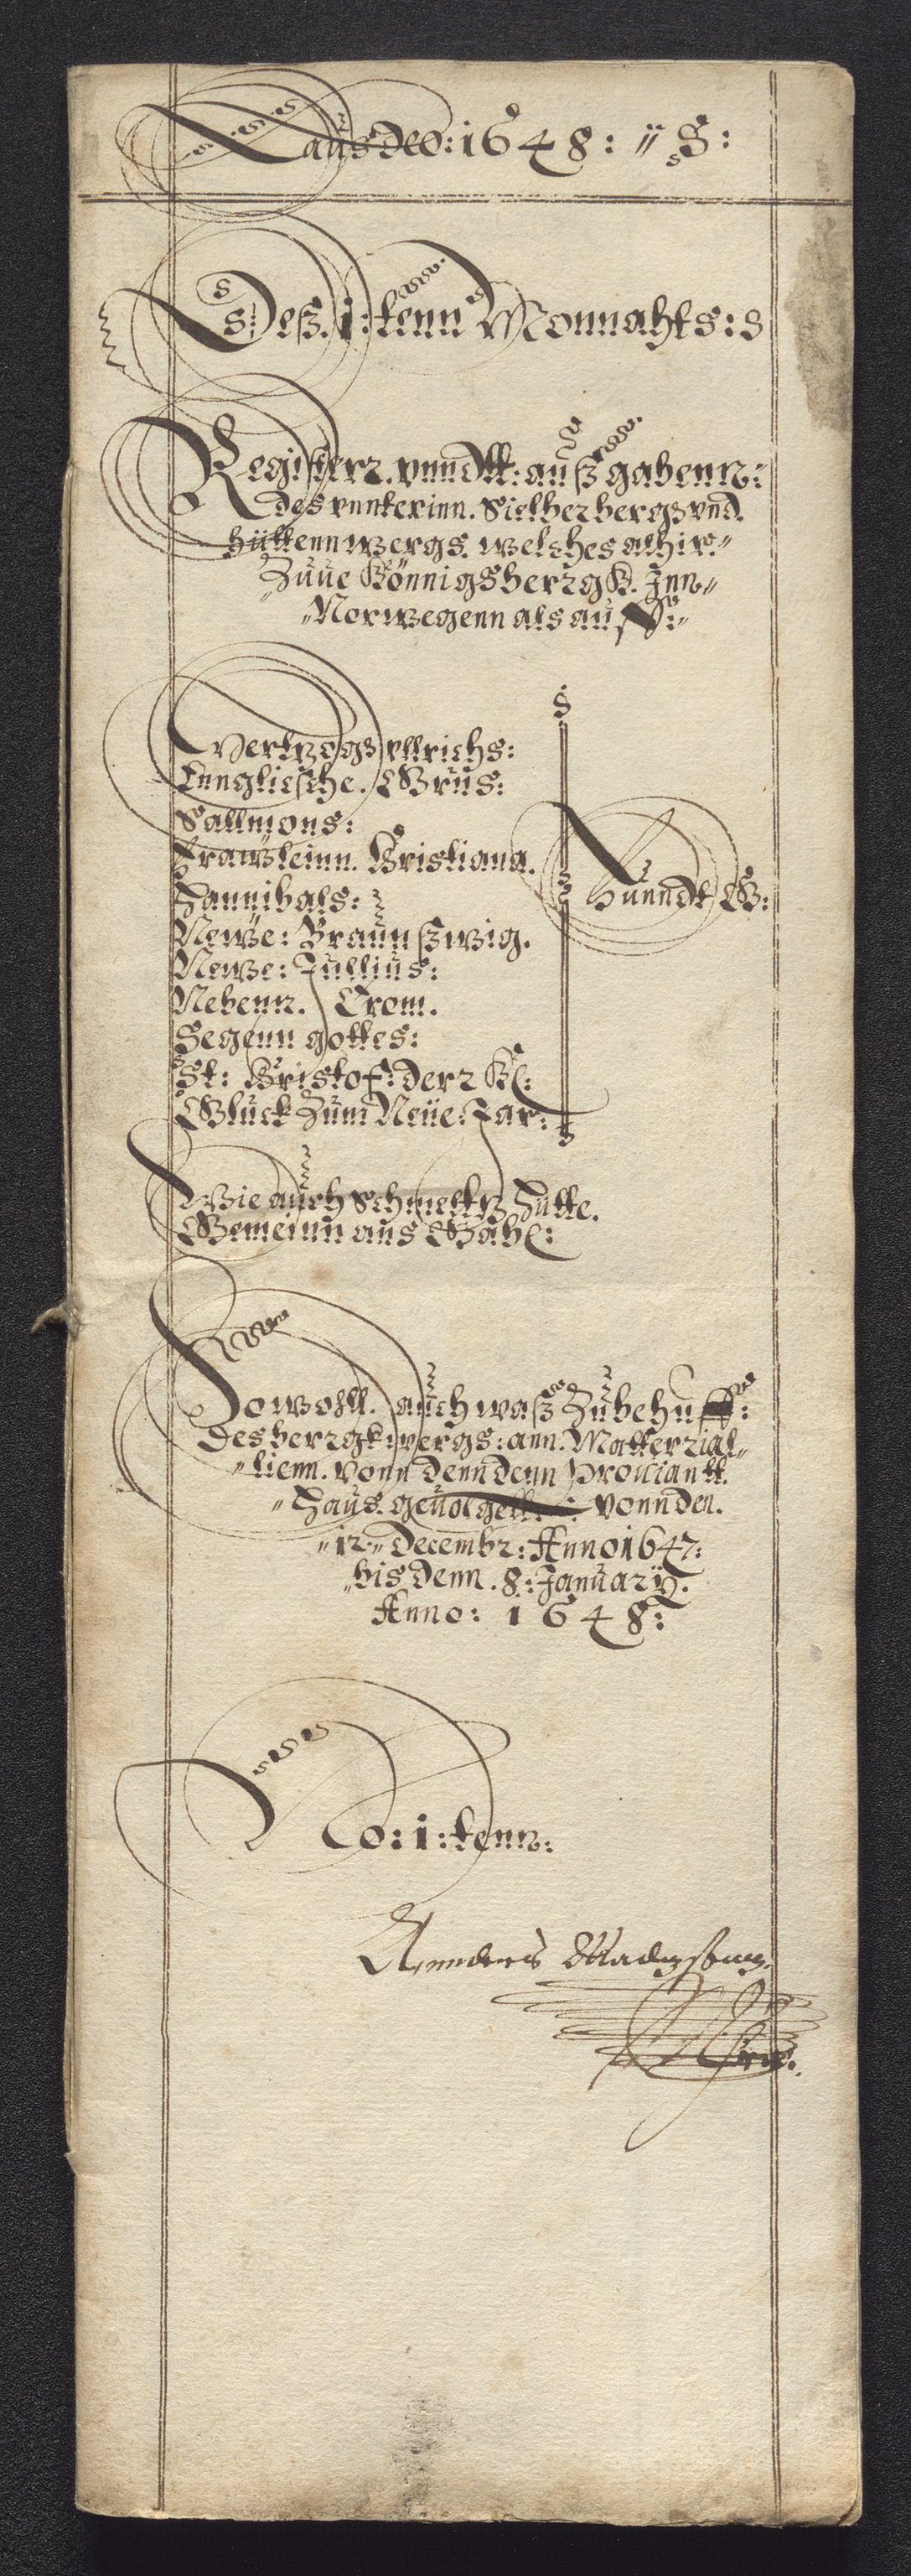 Laus deo: 1648:
Deß. 1: tenn Monnahts:
Registerr. vnndtt: außgabenn:
des vnnterinn. Sielberbergs vnd.
hüttennwergs. welches alhir.
Zuue Königsbergk. Inn
Norwegenn als auff:
Hertzogs vllrichs:
Enngliesche. Grus:
Sallmons:
Frawleinn. Cristiana.
Hannibals:
Newe: Braunßwig.
Newe: Jullius:
Nebenn. Crom.
Segenn gottes:
St: Cristof: derr Kl:
Glück Zum Neue: Jar:
Funndt G:
Wie auch Schmeltz Hütte.
Gemeinn aus Gab:
Sowoll. auch waß Zu behuff:
des bergkwergs: ann. Matterrial
lienn. vonn denn denn Prouiantt.
Haus. geuolgett: vonn den.
12 Decembr: Anno 1647:
bis denn. 8: January.
Anno: 1648:
No: 1: tenn:
Annders Madzsonn